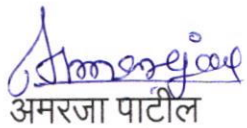 Amarja
अमरजा पाटील